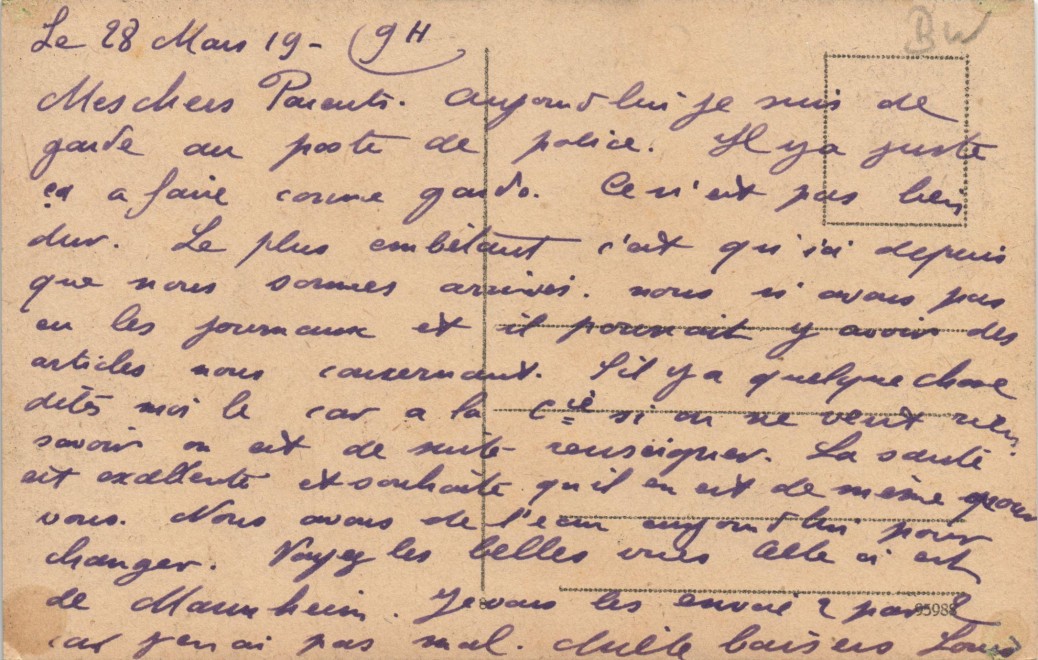 Le 28 Mars 19- 9H
BW
Mes chers Parents. Aujourd'hui je suis de
garde au poste de police. Il y a juste
ça a faire comme garde. Ce n'est pas bien
dur. Le plus embêtant c'est qu'ici depuis
que nous sommes arrivés. nous n'avons pas
eu les journaux et il pourrait y avoir des
articles nous concernant. S'il y a quelque chose
dites moi le car a la Cie si on ne veut rien
savoir on est de suite renseigner. La santé
est excellente et souhaite qu'il en est de même pour
vous. Nous avons de l'eau aujourd'hui pour
changer. Voyez les belles vues Celle ci est
de Mannheim. Je vous les envoie 2 par 2
95988
car j'en ai pas mal. Mille baisers Louis